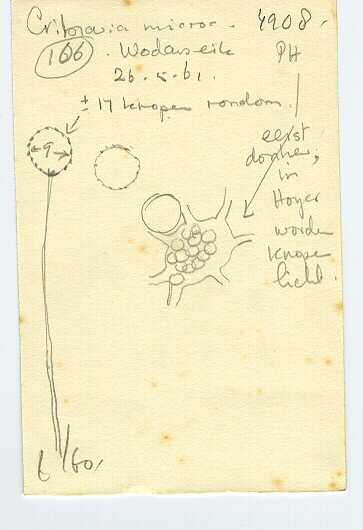 Cribraria microc. 4908.
166. Wodanseik PH
26.5.61.
± 17 knopen rondom.
9
eerst
donker,
in
Hoyer
worden
knopen
licht.
60.